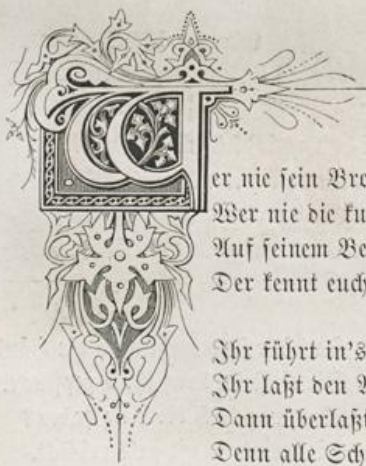 Wer nie sein Bro
Wer nie die ku
Auf seinem Be
Der kennt euch
Ihr führt in's
Ihr laßt den A
Dann überlaßt
Denn alle Sch